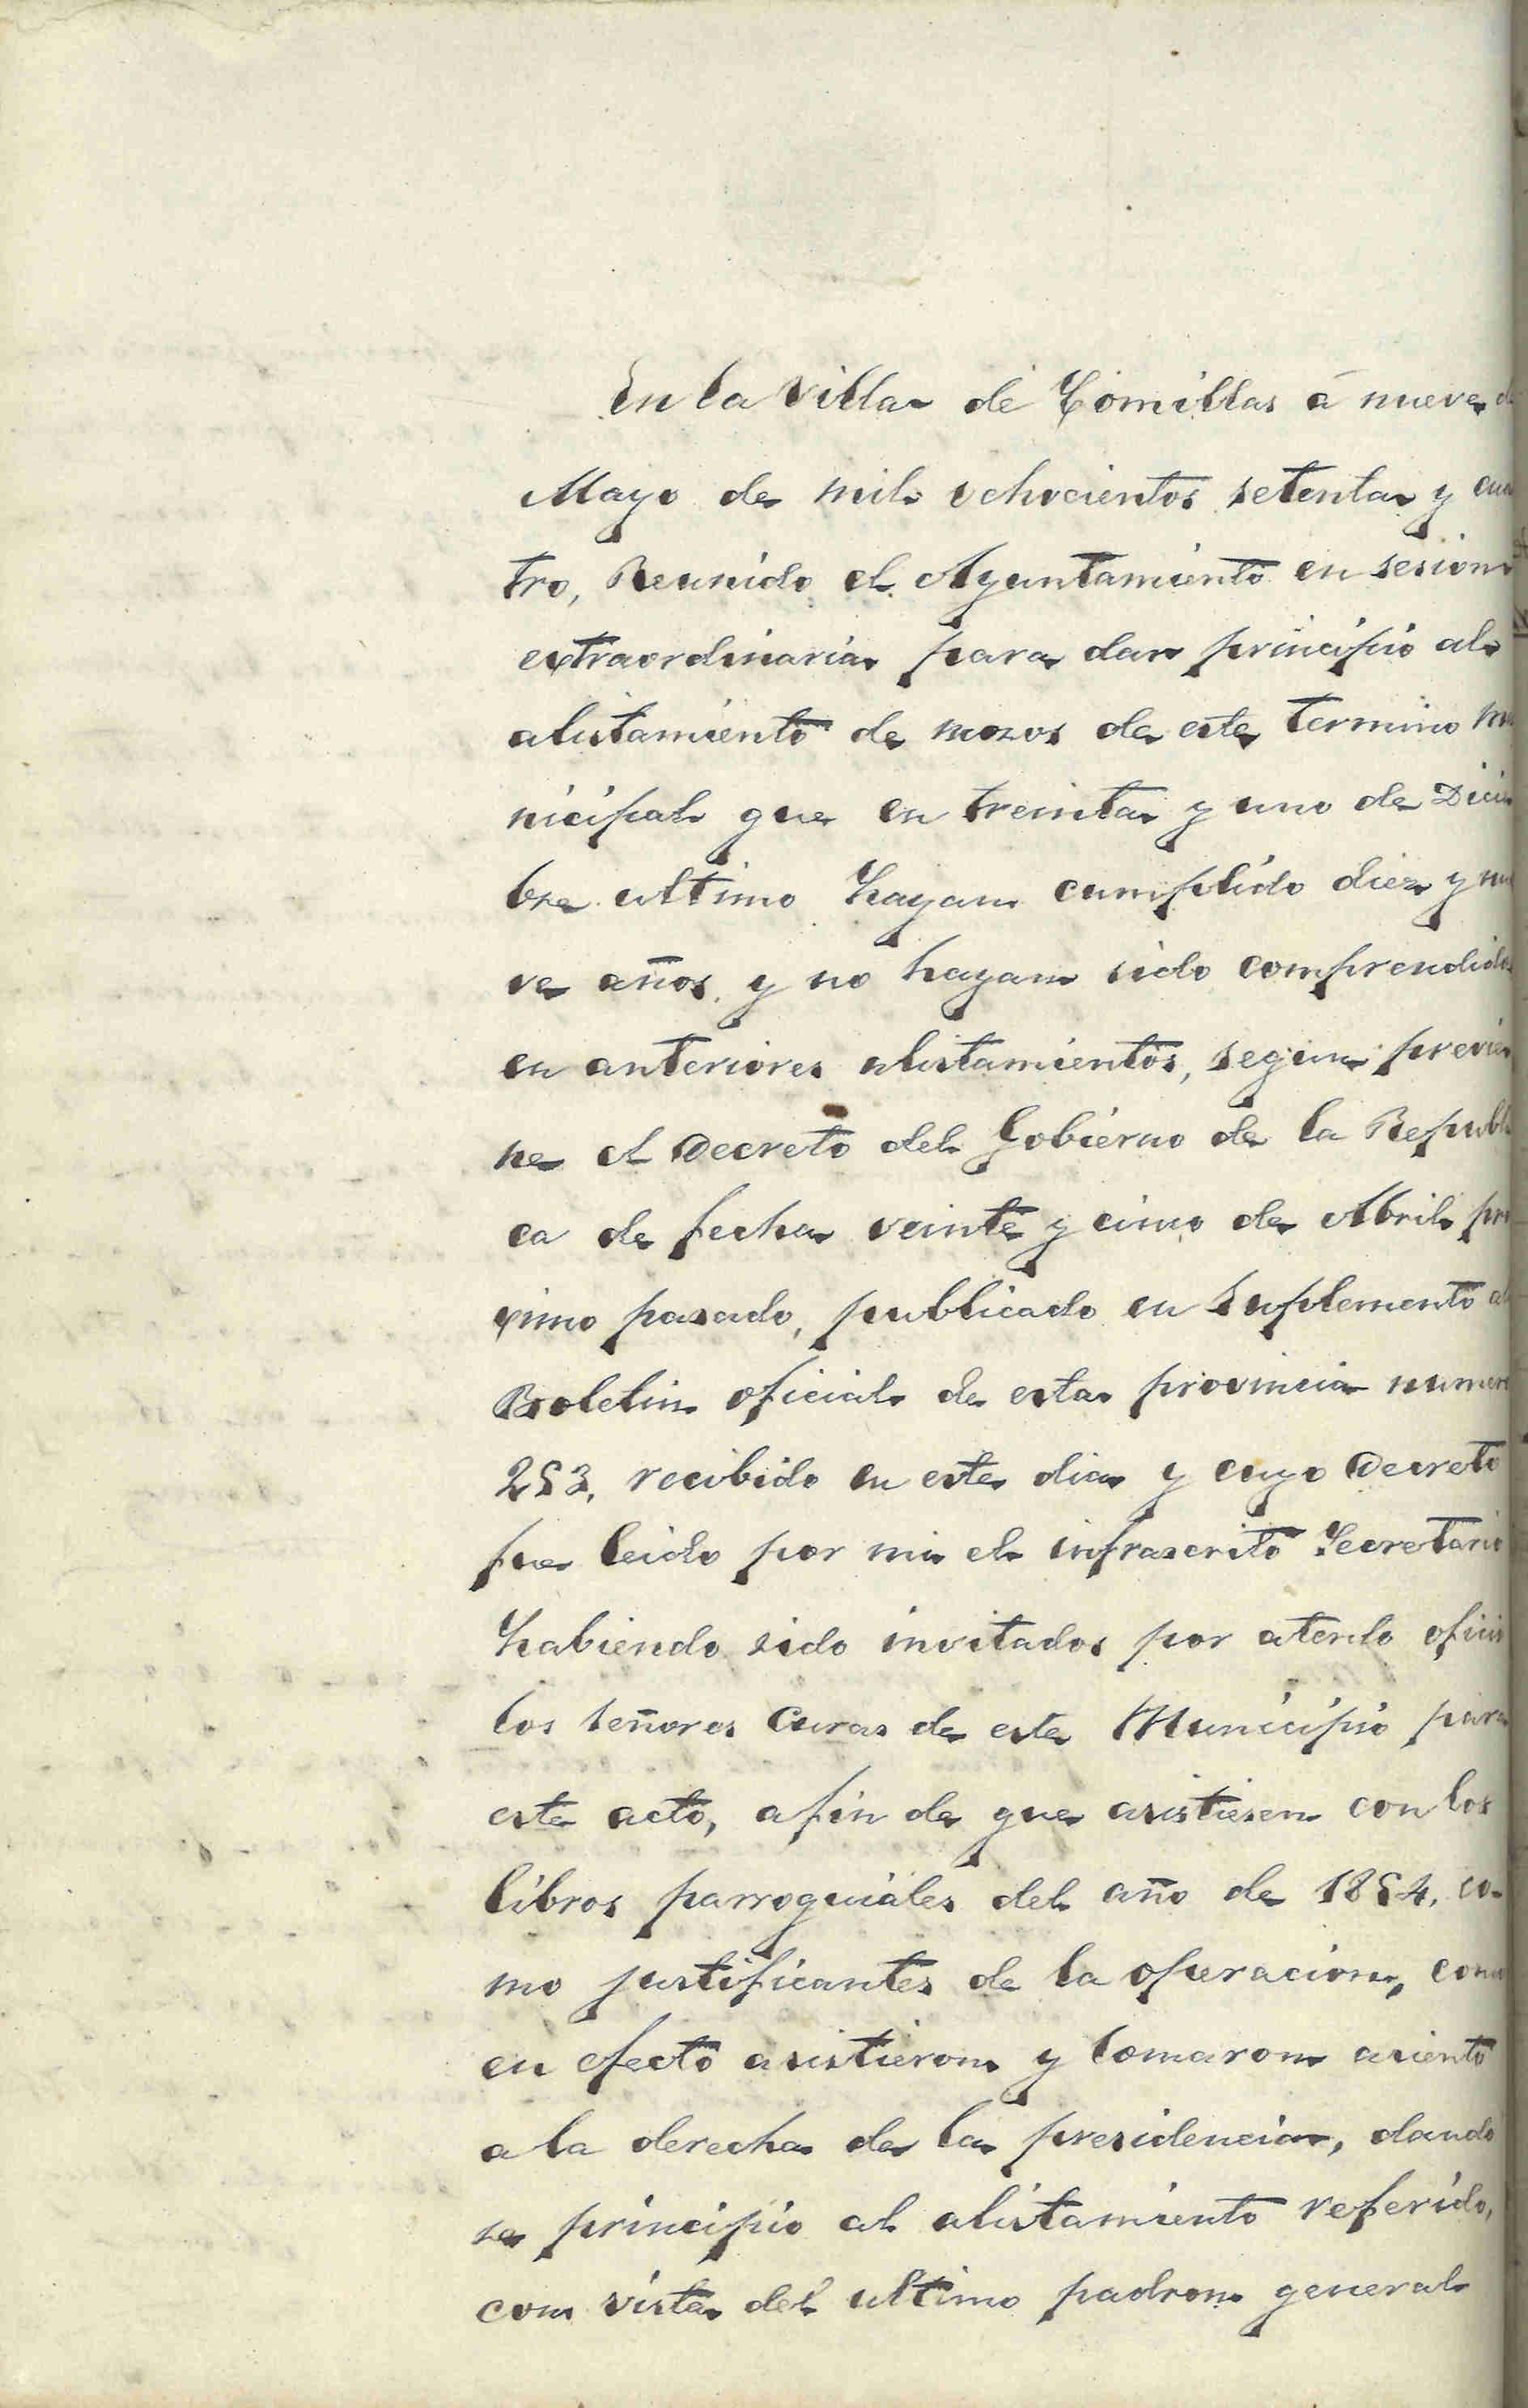 En la villa de Comillas á nueve d
Mayo de mil ochocientos setenta y cua
tro, Reunido el Ayuntamiento en sesion
extraordinaria para dar principio al
alistamiento de mozos de este termino mu
nicipal que en treinta y uno de Dicie
bre ultimo hayan cumplido diez y nue
ve años y no hayan sido comprendidos
en anteriores alistamientos, segun previe
ne el Decreto del Gobierno de la Republi
ca de fecha veinte y cinco de Abril pro
ximo pasado, publicado en suplemento al
Boletin oficial de esta provincia numero
253, recibido en este dia y cuyo Decreto
fue leido por mi el infrascrito Secretario
habiendo sido invitados por atento oficio
los señores Curas de este Municipio para
este acto, afin de que asistiesen con los
libros parroquiales del año de 1854, co-
mo justificantes de la operacion, como
en efecto asistieron y tomaron asiento
a la derecha de la presidencia, dando
se principio al alistamiento referido,
con vista del ultimo padron general